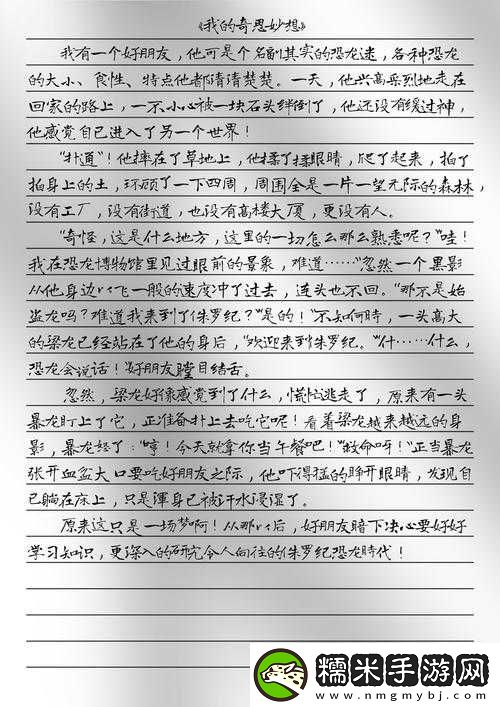 《我的奇思妙想》
我有一个好朋友，他可是个名副其实的恐龙迷，各种恐龙
的大小、食性、特点他都清清楚楚。一天，他兴高采烈地走在
回家的路上，一不小心被一块石头绊倒了，他还没有缓过神，
他感觉自己进入了另一个世界！
“扑通”！他摔在了草地上，他揉了揉眼睛，爬了起来，拍了
拍身上的土，环顾了一下四周，周围全是一片一望无际的森林，
没有工厂，没有街道，也没有高楼大厦，更没有人。
“奇怪，这是什么地方，这里的一切怎么那么熟悉呢？”哇！
我在恐龙博物馆里见过眼前的景象，难道……”忽然一个黑影
从他身边以飞一般的速度冲了过去，连头也不回。“那不是始
盗龙吗？难道我来到了侏罗纪？”“是的！”不知何時，一头高大
的梁龙已经站在了他的身后，“欢迎来到侏罗纪。”什……什么，
恐龙会说话！”好朋友瞠目结舌。
忽然，梁龙好像感觉到了什么，慌忙逃走了，原来有一头
暴龙盯上了它，正准备扑上去吃它呢！看着梁龙越来越远的身
影，暴龙怒了：“哼！今天就拿你当午餐吧！”“救命呀！”正当暴龙
张开血盆大口要吃好朋友之际，他吓得猛的睁开眼睛，发现自
己躺在床上，只是渾身已被汗水浸湿了。
原来这只是一场梦啊！从那以后，好朋友暗下决心要好好
学习知识，更深入的研究令人向往的侏罗纪恐龙時代！
糯米手游网
www.nmgmybj.com